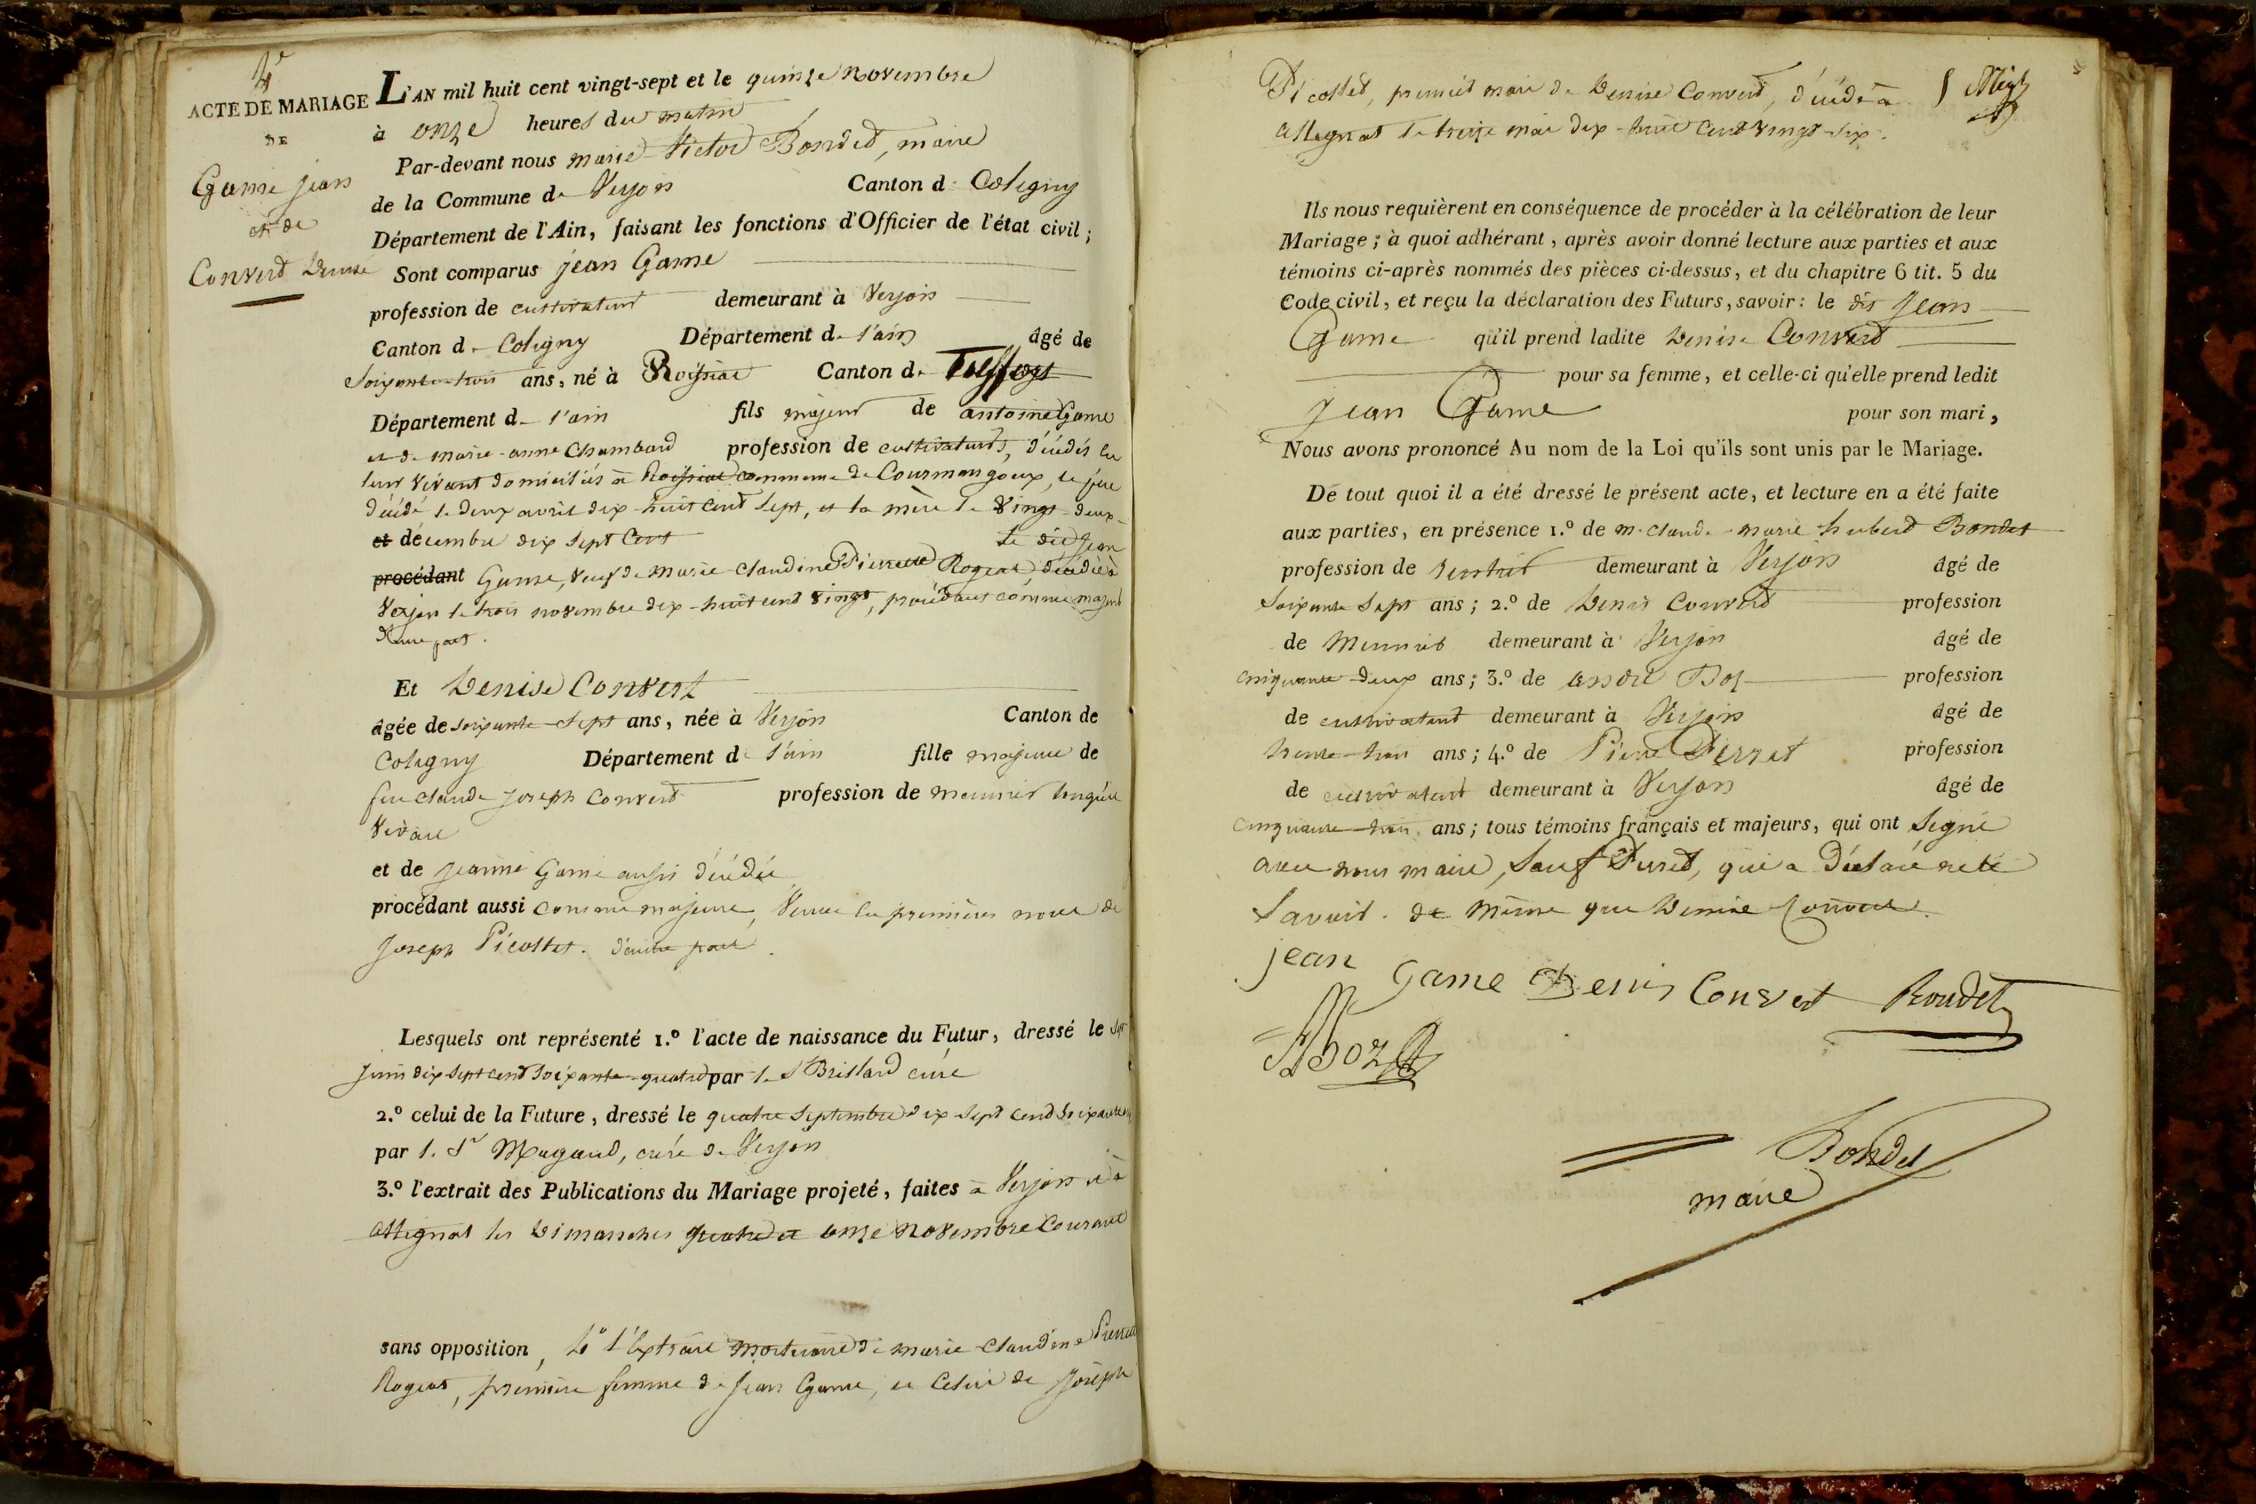 4e
ACTE DE MARIAGE
DE
Game jean
et de
Convert Denise
L'AN mil huit cent vingt-sept et le quinze novembre
à onze heures du matin
Par-devant nous marie-Victor Bondet, maire
de la Commune de Verjon Canton de Coligny
Département de l'Ain, faisant les fonctions d'Officier de l'état civil ;
Sont comparus jean Game
profession de cultivateur demeurant à Verjon
Canton de Coligny Département de l'ain âgé de
Soixante-trois ans, né à Roissiat Canton de Treffort
Département de l'ain fils majeur de antoine Game
et de marie-anne Chambard profession de cultivateurs, décédés en
leur vivant domiciliés à Roissiat commune de Courmangoux, le père
décédé le deux avril dix-huit cent sept, et la mère le vingt-deux
et décembre dix sept cent le dit jean
procédant Game, veuf de marie-claudine Pierrette Rogeat, décédée à
Verjon le trois novembre dix-huit cent vingt, procédant comme majeur
d'une part.
Et Denise Convert
âgée de soixante-sept ans, née à Verjon Canton de
Coligny Département de l'ain fille majeure de
feu claude joseph Convert profession de meunier lorsqu'il
vivait
et de jeanne Game aussi décédée
procédant aussi comme majeure, Veuve en premières noces de
joseph Picollet. d'autre part.
Lesquels ont représenté 1.º l'acte de naissance du Futur, dressé le sept
juin dix sept cent soixante-quatre par le Sr Brillard curé
2.º celui de la Future, dressé le quatre septembre dix-sept cent soixante
par le Sr Mugand, curé de Verjon
3.º l'extrait des Publications du Mariage projeté, faites à Verjon et à
attignat les Dimanches quatre et onze novembre courant
sans opposition, 4º l'Extrait mortuaire de marie-claudine Pierrette
Rogeat, première femme de jean Game, et celui de joseph
Picollet, premier mari de Denise Convert, décédé à
attignat le treize mai dix-huit cent vingt-six.
Ils nous requièrent en conséquence de procéder à la célébration de leur
Mariage ; à quoi adhérant, après avoir donné lecture aux parties et aux
témoins ci-après nommés des pièces ci-dessus, et du chapitre 6 tit. 5 du
Code civil, et reçu la déclaration des Futurs, savoir : le dit jean
Game qu'il prend ladite Denise Convert
pour sa femme, et celle-ci qu'elle prend ledit
jean Game pour son mari,
Nous avons prononcé Au nom de la Loi qu'ils sont unis par le Mariage.
De tout quoi il a été dressé le présent acte, et lecture en a été faite
aux parties, en présence 1.º de m. claude-marie herberd Bondet
profession de rentier demeurant à Verjon âgé de
Soixante Sept ans ; 2.º de Denis Convert profession
de Meunier demeurant à Verjon âgé de
cinquante-deux ans ; 3.º de andré Boz profession
de cultivateur demeurant à Verjon âgé de
trente-trois ans ; 4.º de Pierre Perret profession
de cultivateur demeurant à Verjon âgé de
cinquante-trois ans ; tous témoins français et majeurs, qui ont signé
avec nous maire, sauf Perret, qui a déclaré ne le
savoir. de même que Denise Convert.
jean Game Denis Convert Bondet
A Boz
Bondet
maire